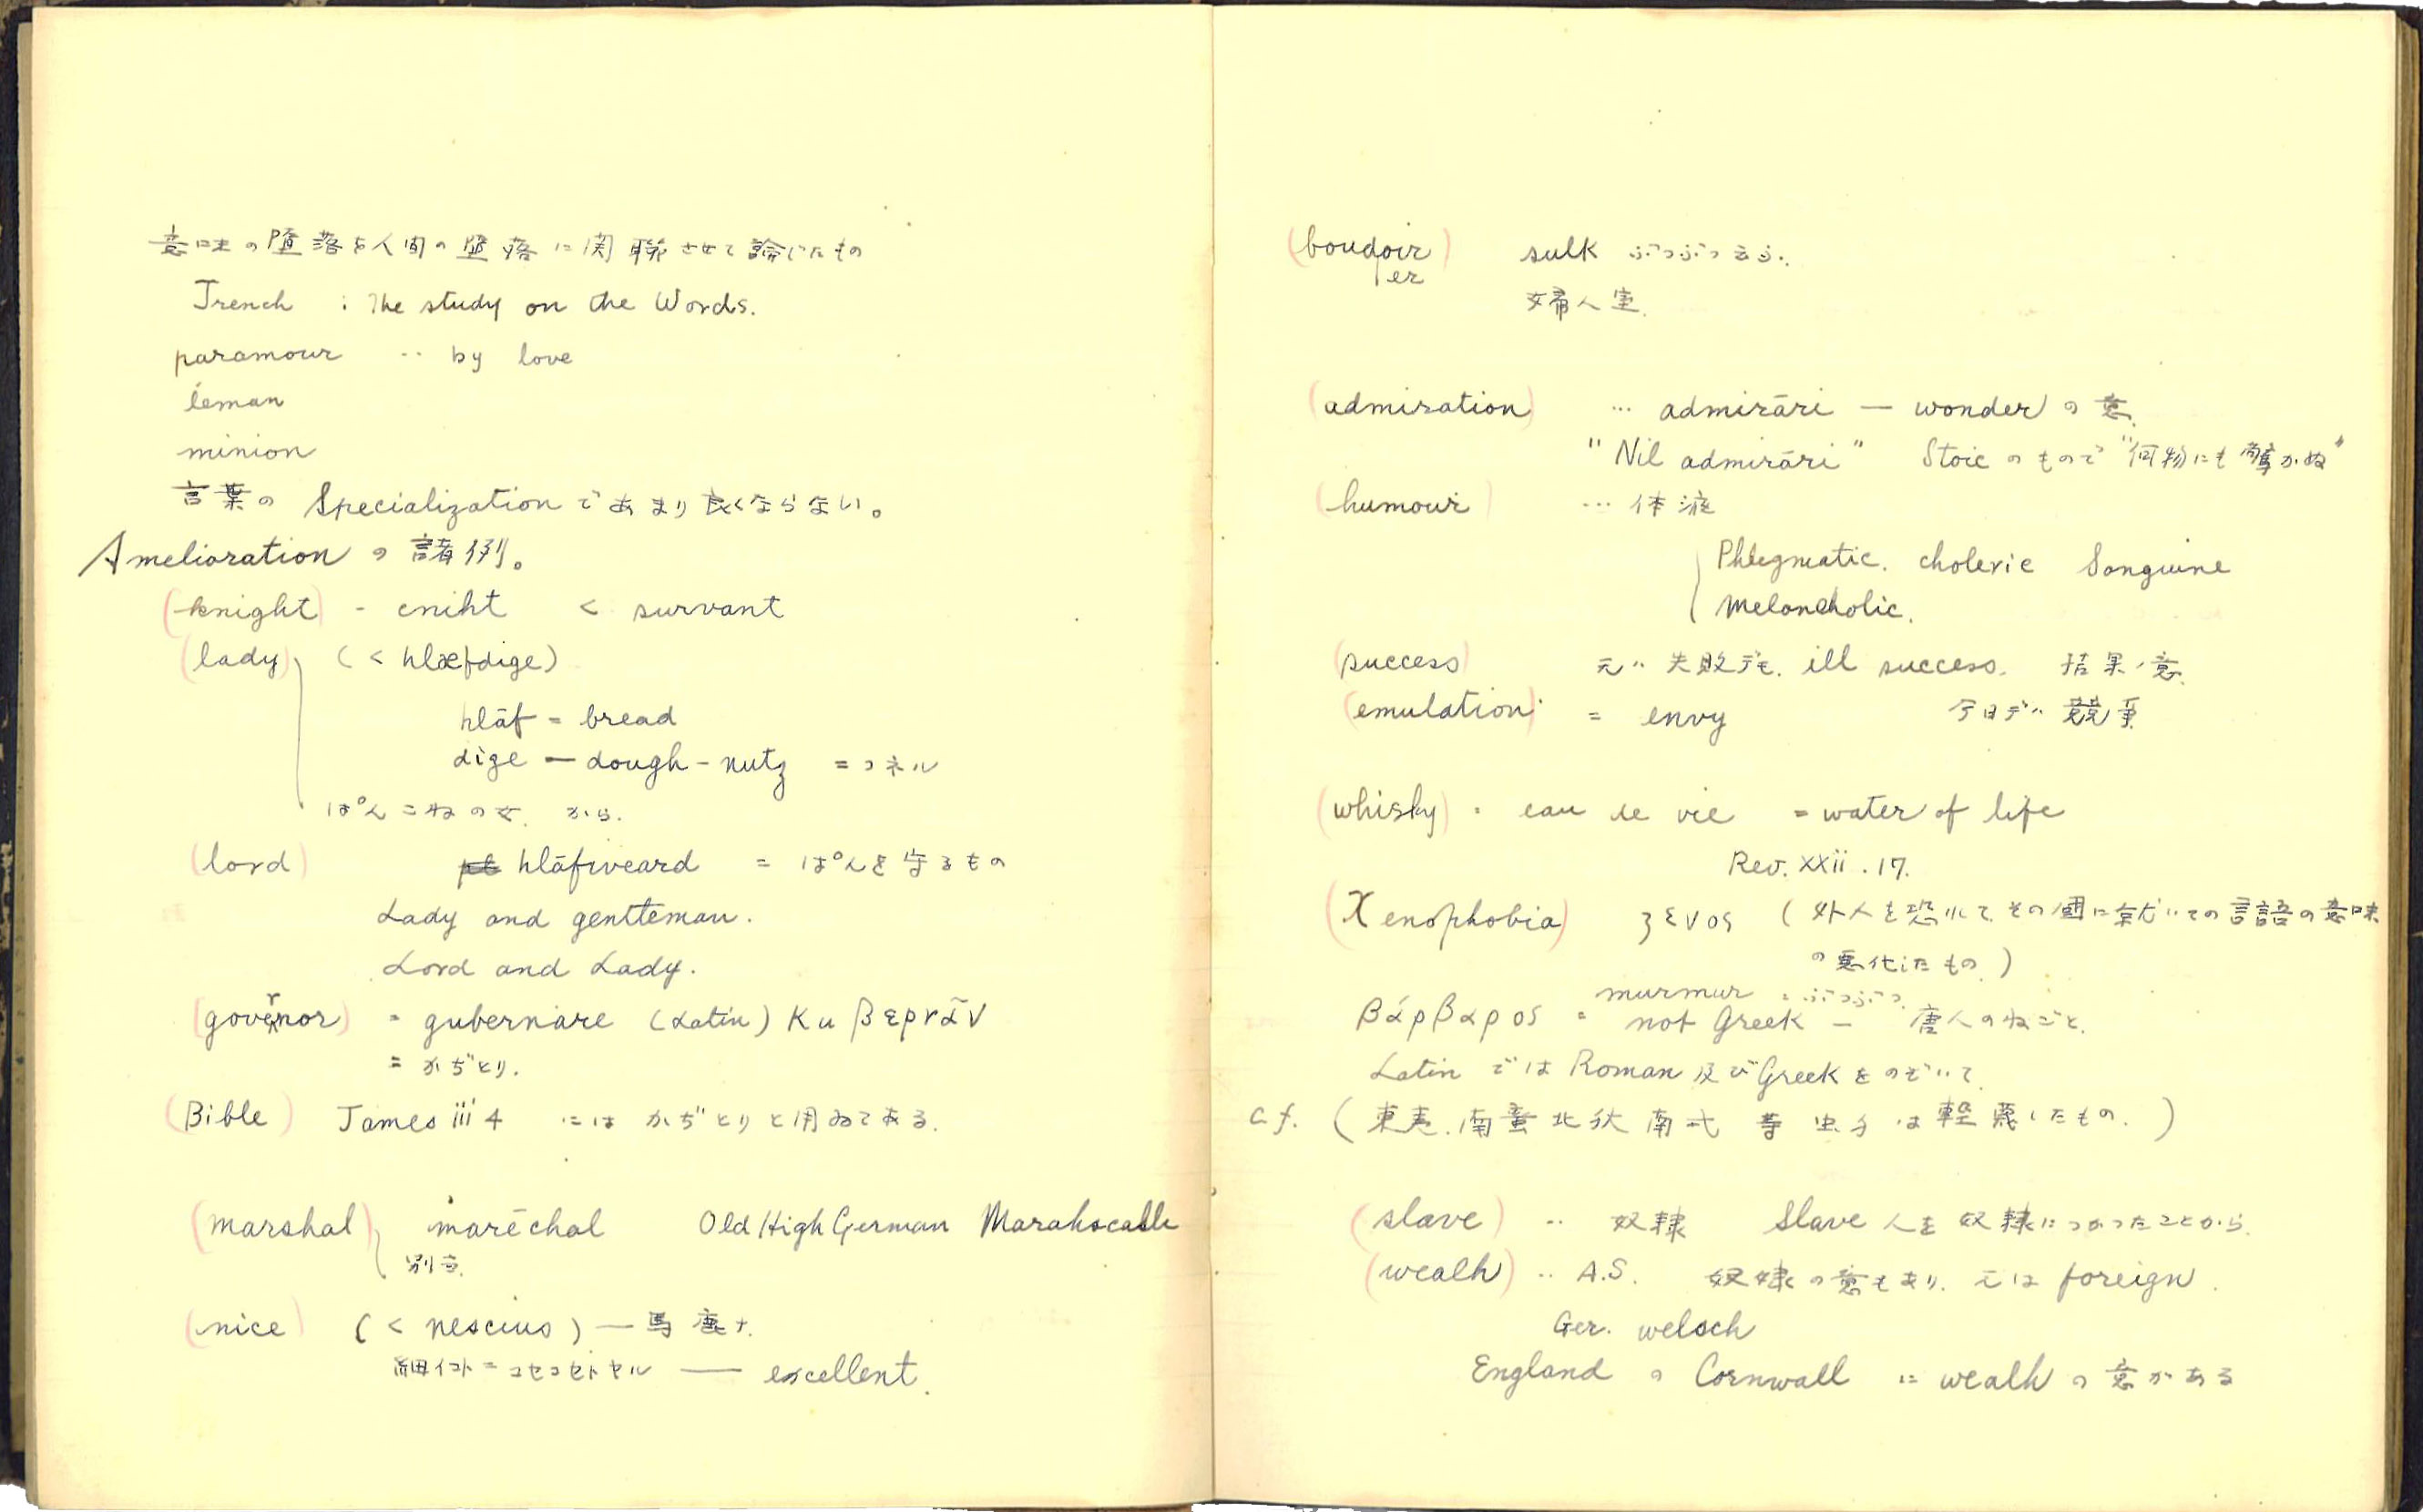 意味の堕落を人間の堕落に関聯させて論じたもの
Trench : The study on the Words.
paramour ‥ by love
leman
minion
言葉の Specialization であまり良くならない。
Amelioration の諸例。
(knight) - cniht < survant
(lady) (< hlæfdige)
hlāf = bread
dige — dough-nutz = コネル
ぱんこねの女 から.
(lord) hlāfweard = ぱんを守るもの
Lady and gentleman.
Lord and Lady.
(governor) = gubernare (Latin) Κυβερνᾶν
= かぢとり.
(Bible) James iii 4 には かぢとりと用ゐてある.
(marshal) maréchal Old High German Marahscalh
(nice) (< nescius) — 馬鹿ナ.
コセコセトヤル — excellent.
(boudoir) sulk ぶつぶつ云ふ.
er
婦人室.
(admiration) … admirāri — wonder の意.
"Nil admirāri" Stoic のもので "何物にも驚かぬ"
(humour) … 体液
Phlegmatic. choleric Sanguine
Melancholic.
(success) 元ハ 失敗デモ. ill success. 結果ノ意.
(emulation) = envy 今日デハ 競争
(whisky) = eau de vie = water of life
Rev. xxii. 17.
(Xenophobia) ξενος (外人を恐れて その国に就いての言語の意味
の悪化したもの)
murmur = ぶつぶつ
βάρβαρος = not Greek — 唐人のねごと.
Latin では Roman 及び Greek をのぞいて.
c.f. (東夷. 南蛮 北狄 南戎 等 虫 は軽蔑したもの.)
(slave) ‥ 奴隷 Slave 人を奴隷につかつたことから.
(wealh) ‥ A.S. 奴隷の意もあり. 元は foreign.
Ger. welsch
England の Cornwall に wealh の意がある